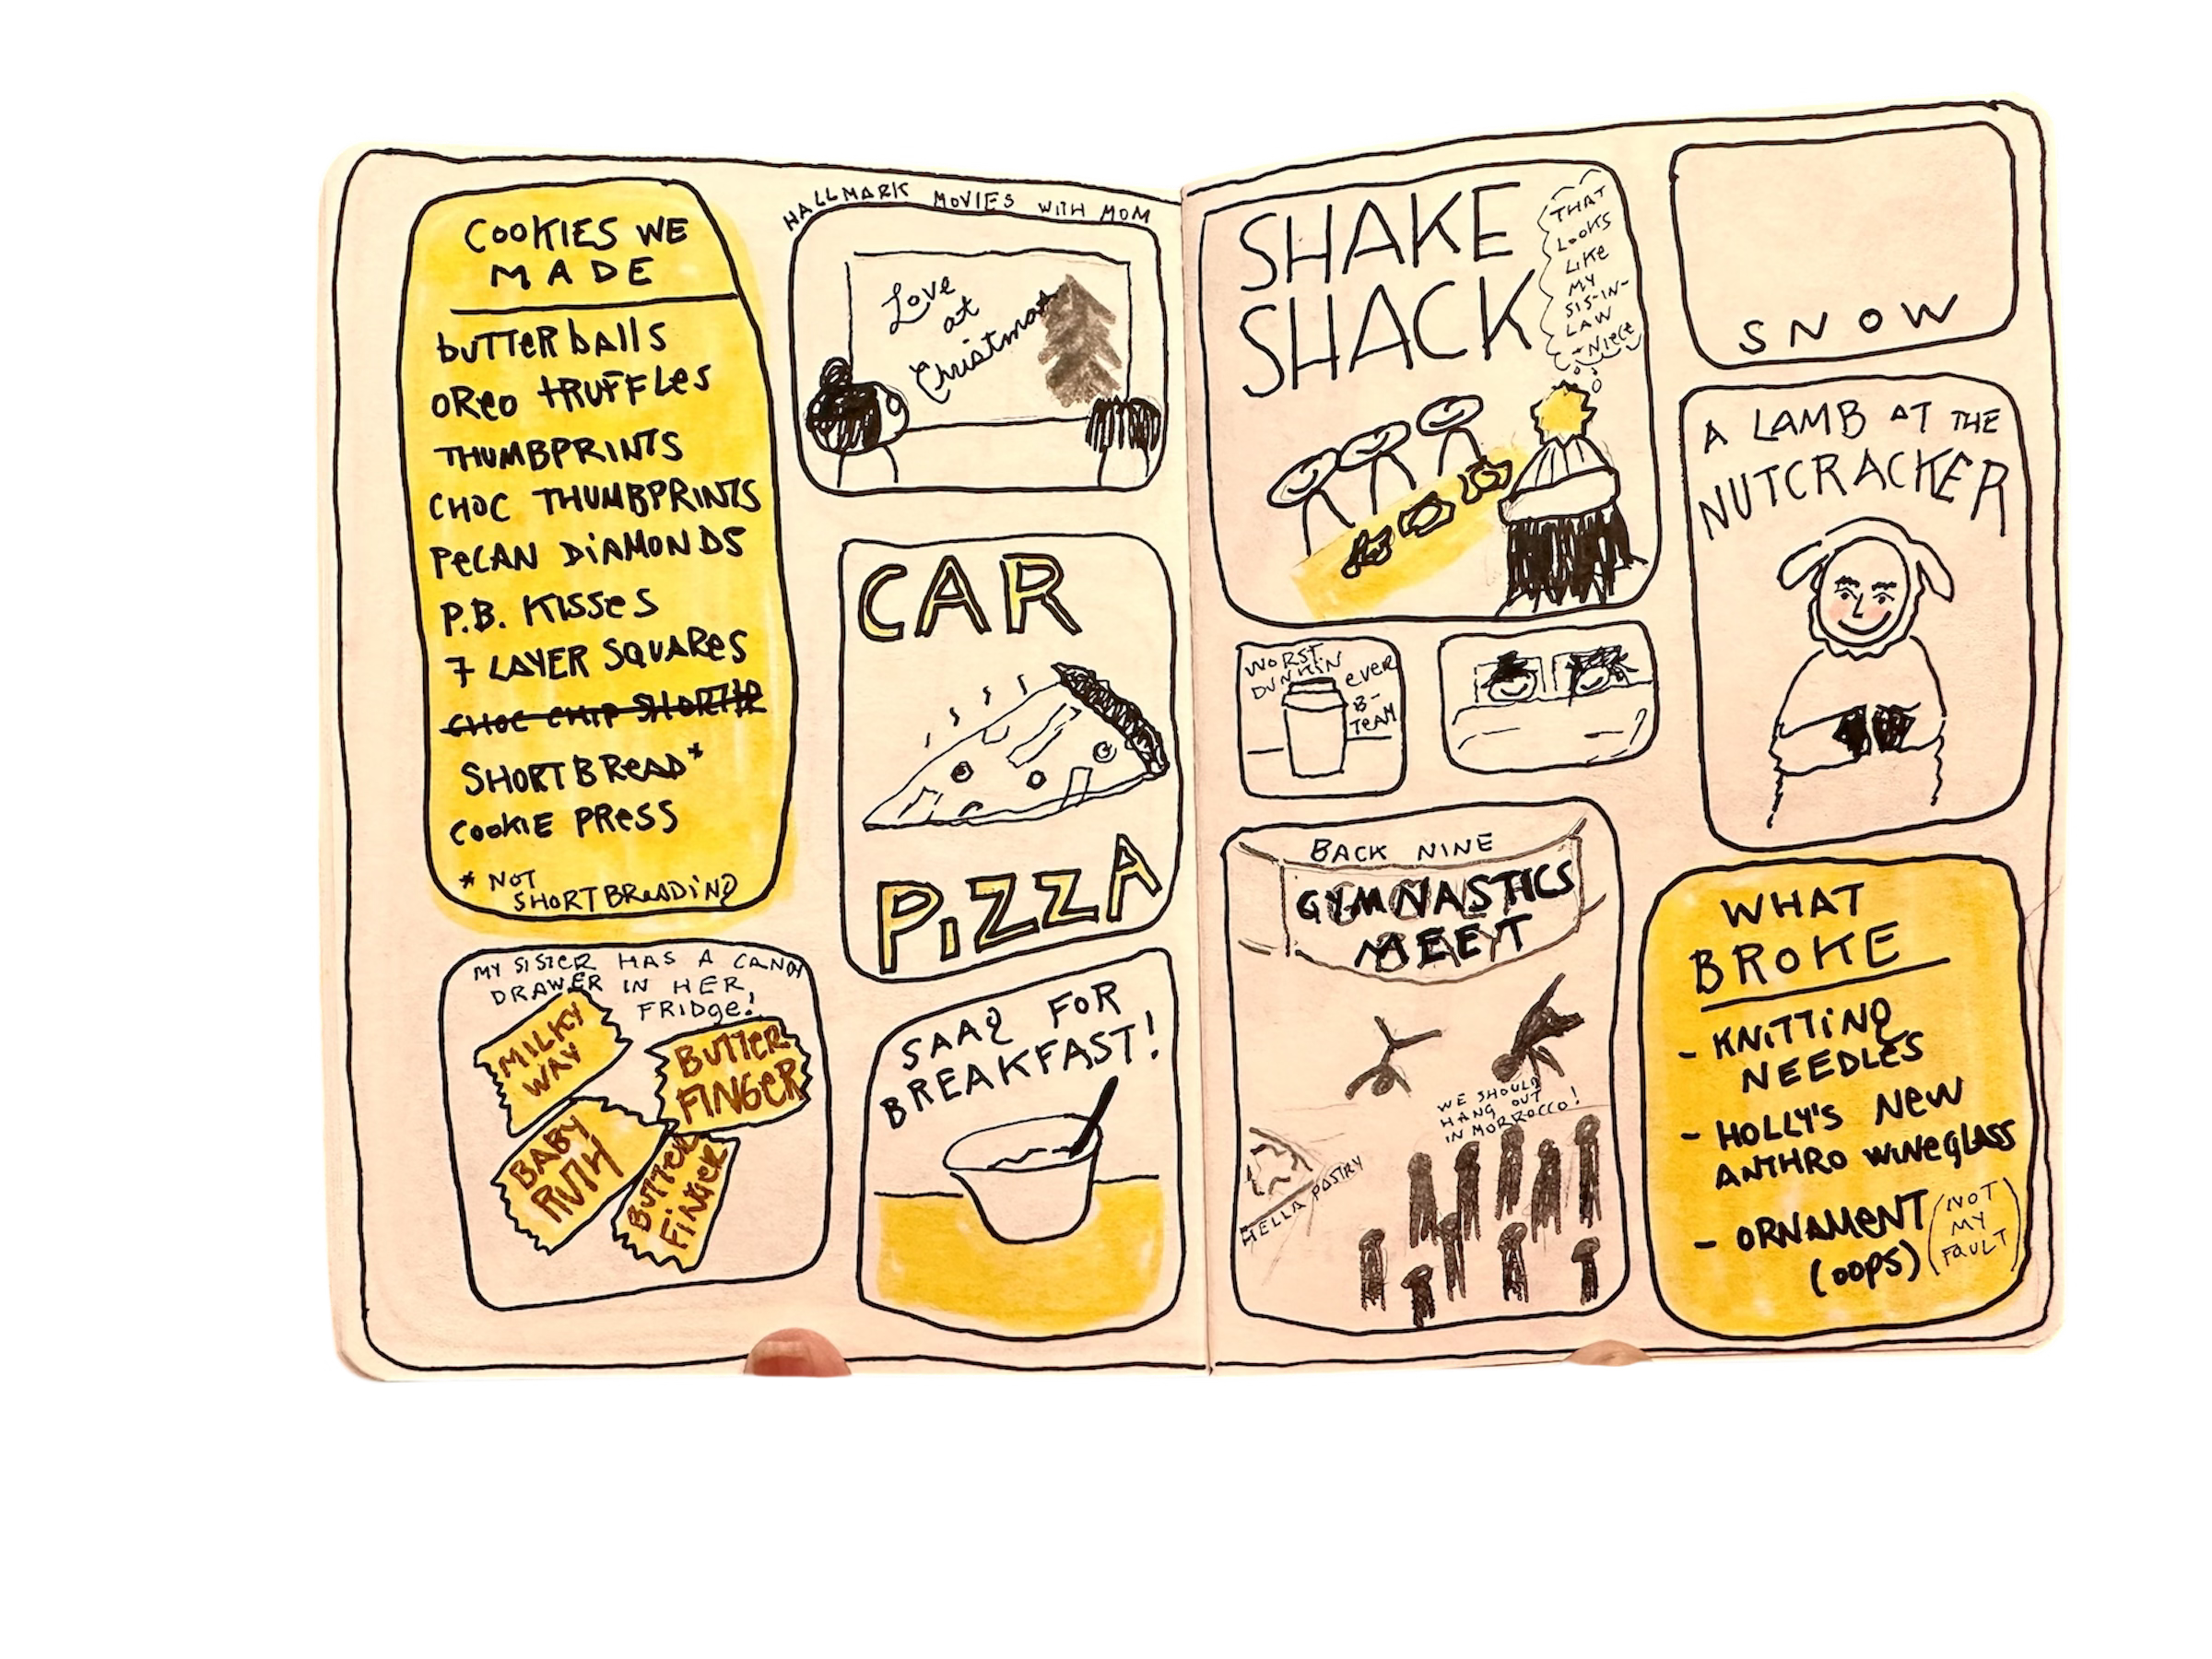 COOKIES WE
MADE
BUTTERBALLS
OREO TRUFFLES
THUMBPRINTS
CHOC THUMBPRINTS
PECAN DIAMONDS
P.B. KISSES
7 LAYER SQUARES
CHOC CHIP
SHORTBREAD*
COOKIE PRESS
* NOT
SHORTBREADING
MY SISTER HAS A CANDY
DRAWER IN HER
FRIDGE!
MILKY
WAY
BUTTER
FINGER
BABY
RUTH
BUTTER
FINGER
HALLMARK MOVIES WITH MOM
Love
at
Christmas
CAR
PIZZA
SAAG FOR
BREAKFAST!
SHAKE
SHACK
THAT
LOOKS
LIKE
MY
SIS-IN-
LAW
+ NIECE
WORST
DUNKIN
EVER
B-
TEAM
BACK NINE
GYMNASTICS
MEET
WE SHOULD
HANG OUT
IN MORROCCO!
HELLA PASTRY
SNOW
A LAMB AT THE
NUTCRACKER
WHAT
BROKE
- KNITTING
NEEDLES
- HOLLY'S NEW
ANTHRO WINEGLASS
- ORNAMENT
(OOPS)
(NOT
MY
FAULT)